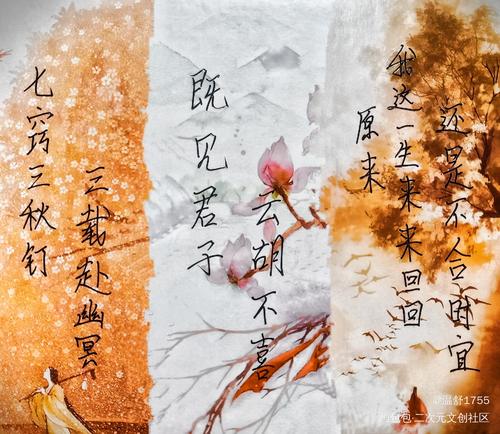 七窍三秋钉
三載赴幽冥
既见君子
云胡不喜
原来
我这一生来来回回
还是不合时宜
@温舒1755
二次元文创社区